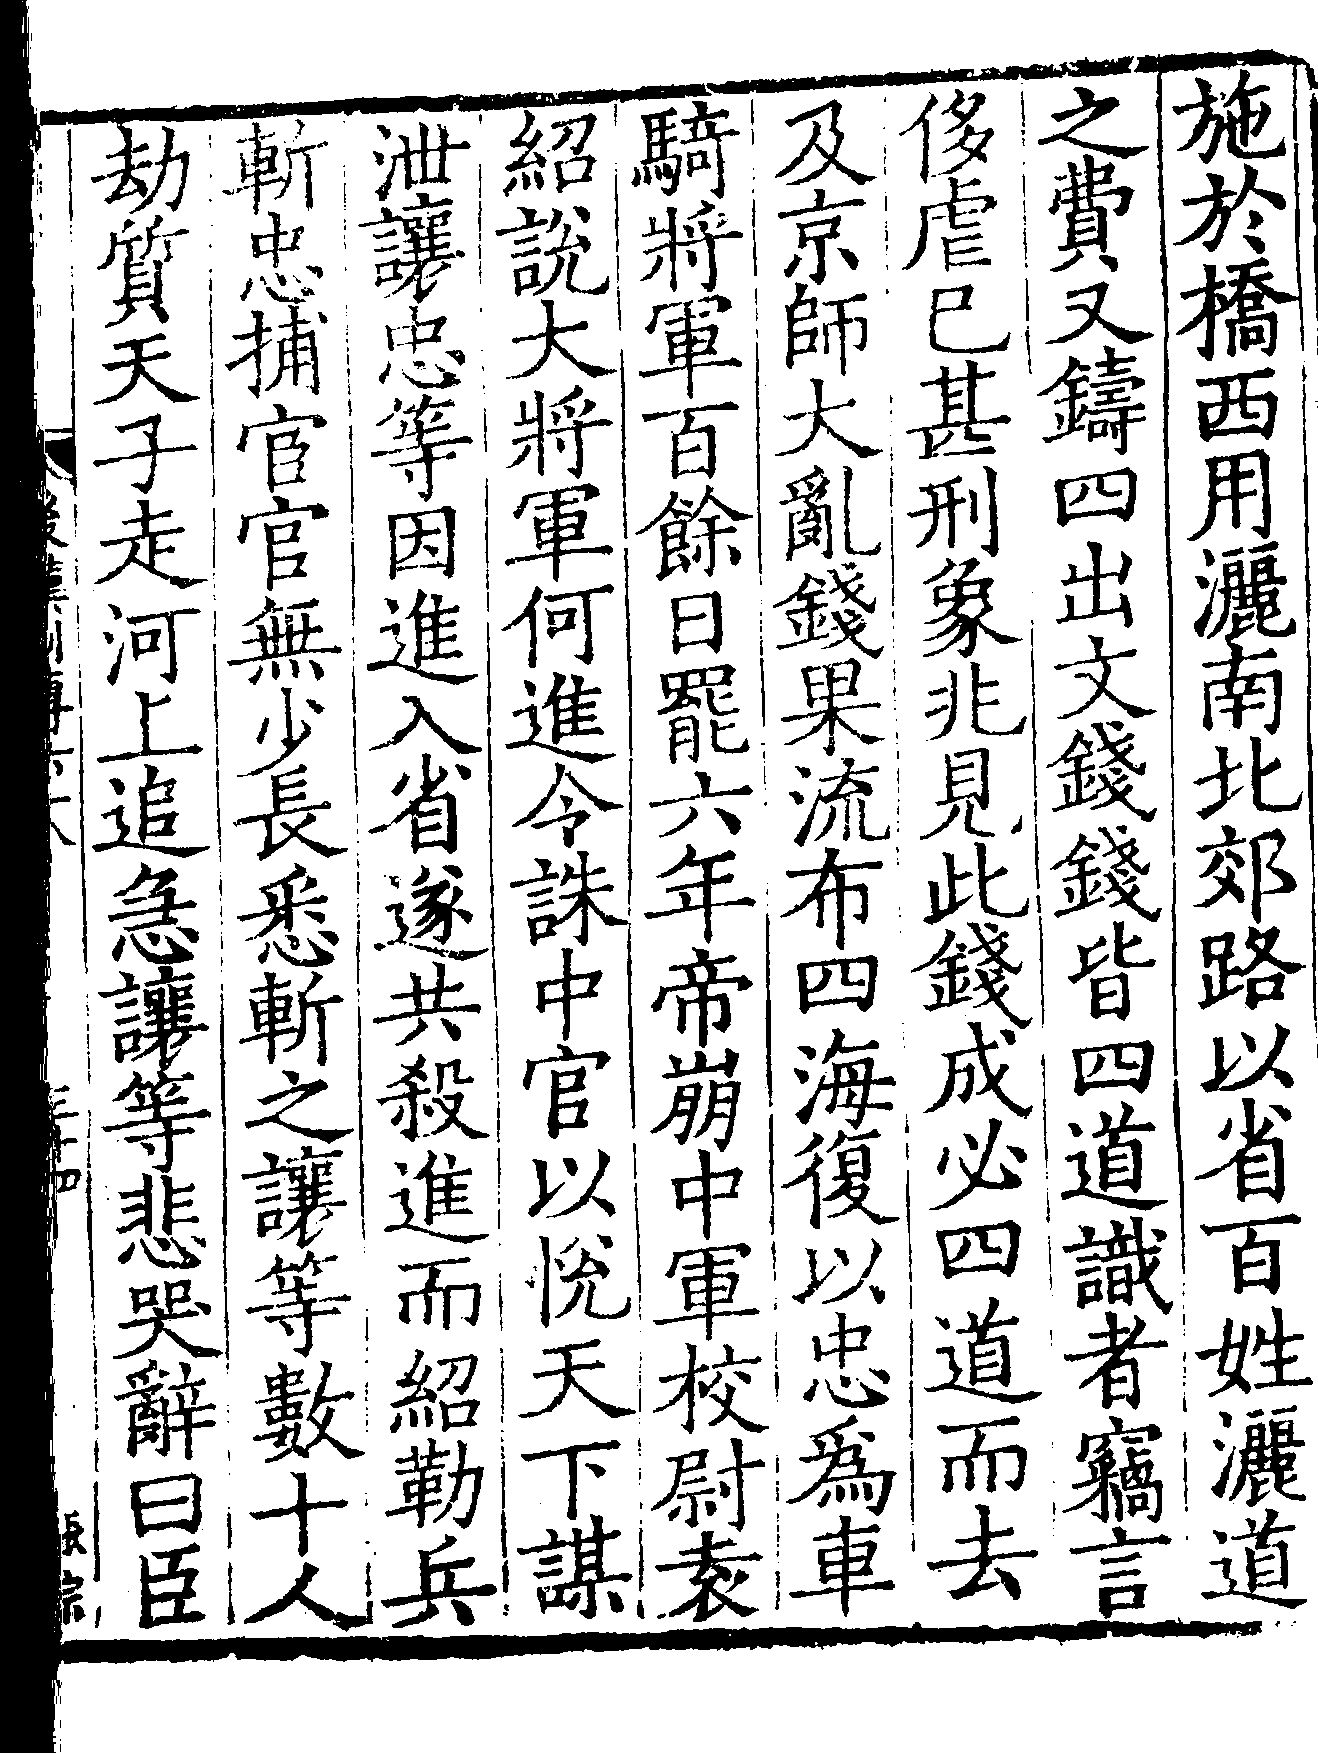 施於橋西用灑南北郊路以省百姓灑道
之費又鑄四出文錢錢皆四道識者竊言
侈虐已甚刑象兆見此錢成必四道而去
及京師大亂錢果流布四海復以忠爲車
騎將軍百餘日罷六年帝崩中軍校尉袁
紹說大將軍何進令誅中官以悅天下謀
泄讓忠等因進入省遂共殺進而紹勒兵
斬忠捕宦官無少長悉斬之讓等數十人
劫質天子走河上追急讓等悲哭辭曰臣